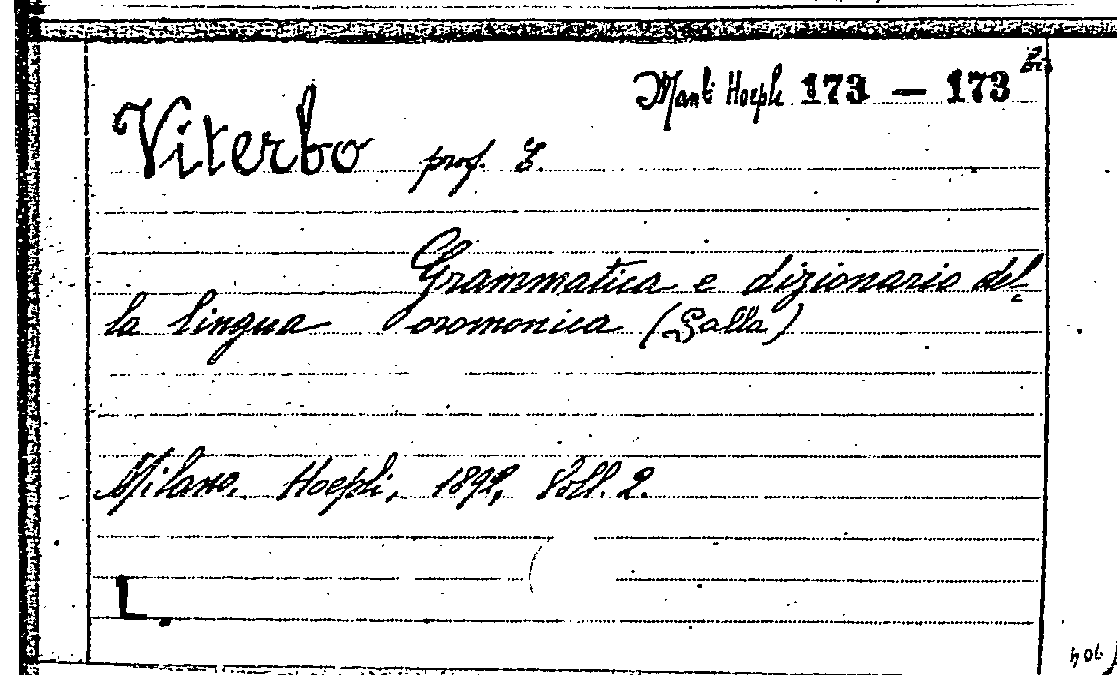 Manti Hoepli 173 — 173 bis
Viterbo prof. E.
Grammatica e dizionario del
la lingua oromonica (Galla)
Milano. Hoepli, 1892, Voll. 2.
L.